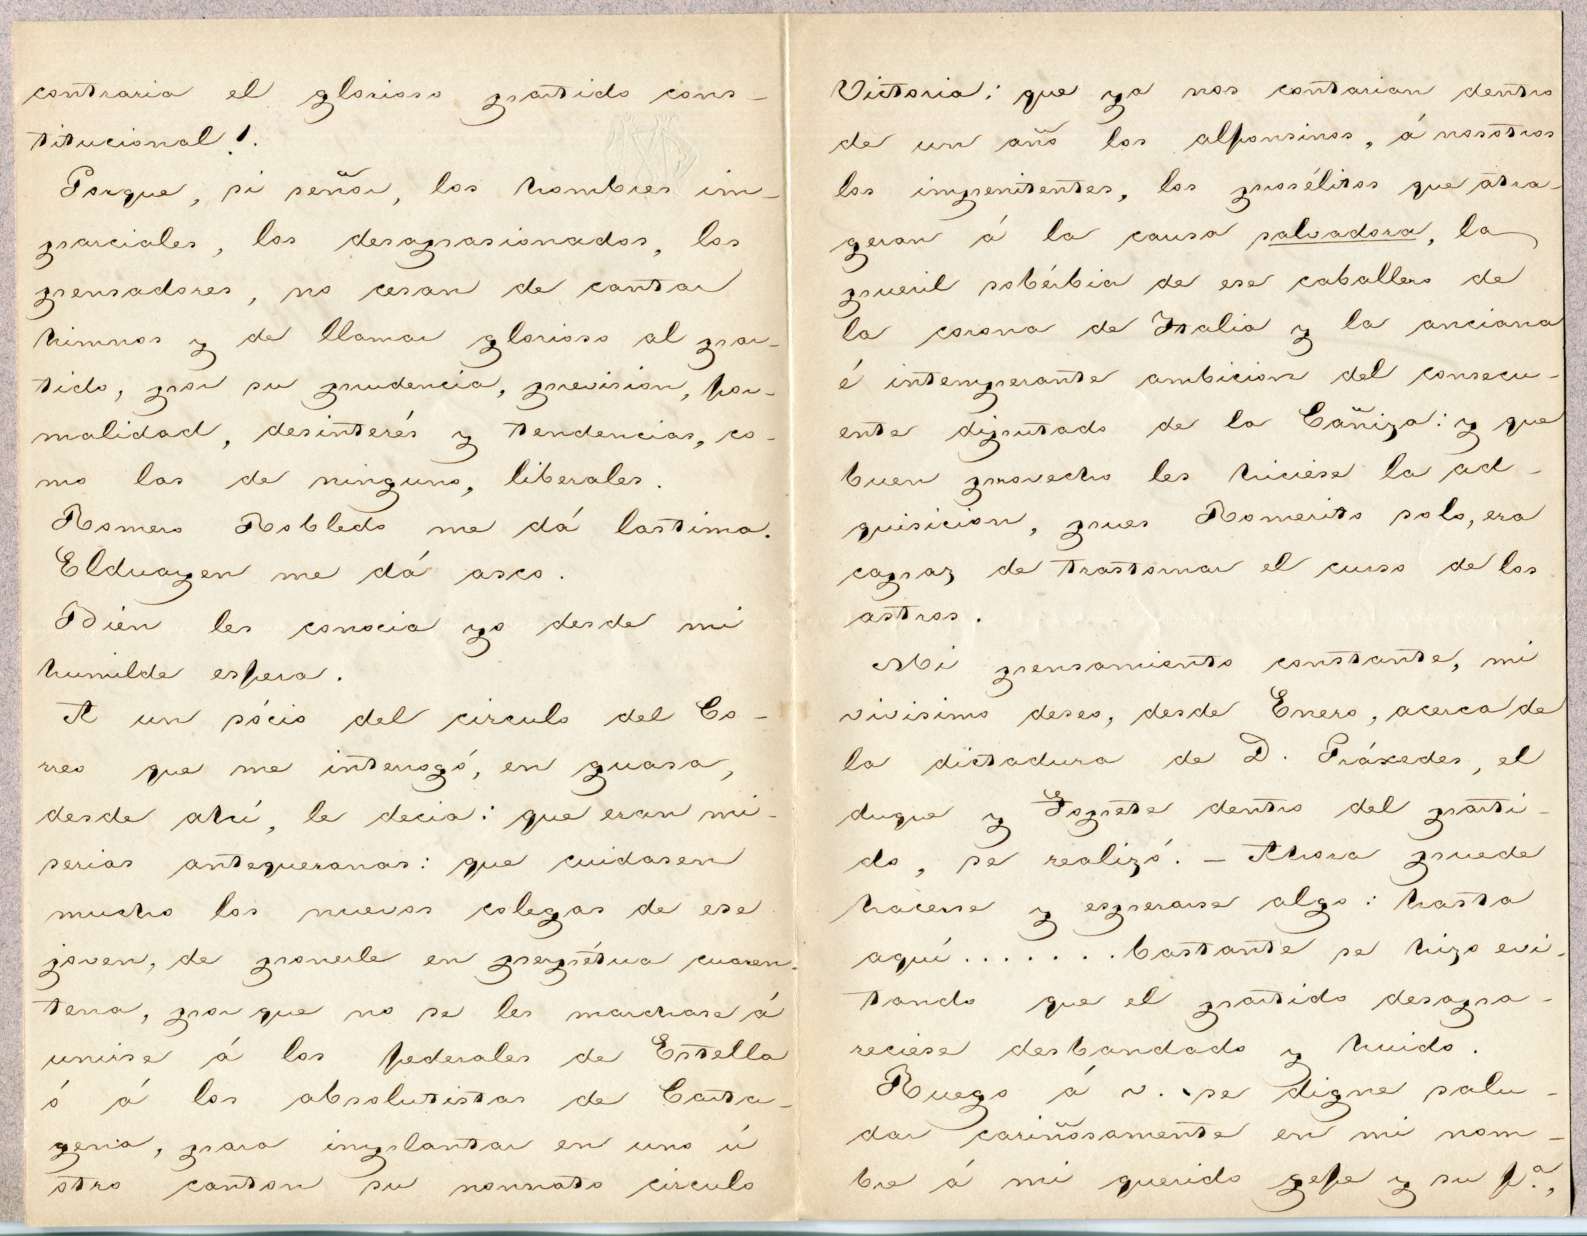 contraria el glorioso partido cons-
titucional!.
Porque, si señor, los hombres im-
parciales, los desapasionados, los
pensadores, no cesan de cantar
himnos y de llamar glorioso al par-
tido, por su prudencia, prevision, for-
malidad, desinterés y tendencias, co-
mo las de ninguno, liberales.
Romero Robledo me dá lastima.
Elduayen me dá asco.
Bien les conocia yo desde mi
humilde esfera.
A un sócio del circulo del Co-
rreo que me interrogó, en guasa,
desde ahí, le decia: que eran mi-
serias antequeranas: que cuidasen
mucho los nuevos colegas de ese
joven, de ponerle en perpétua cuaren-
tena, por que no se les marchase á
unirse á los federales de Estella
ó á los absolutistas de Carta-
gena, para implantar en uno ú
otro canton su nonnato circulo
Victoria: que ya nos contarian dentro
de un año los alfonsinos, á nosotros
los impenitentes, los prosélitos que atra-
geran á la causa salvadora, la
pueril sobérbia de ese caballero de
la corona de Italia y la anciana
é intemperante ambicion del consecu-
ente diputado de la Cañiza: y que
buen provecho les hiciese la ad-
quisicion, pues Romerito solo, era
capaz de trastornar el curso de los
astros.
Mi pensamiento constante, mi
vivisimo deseo, desde Enero, acerca de
la dictadura de D. Práxedes, el
duque y Topete dentro del parti-
do, se realizó. – Ahora puede
hacerse y esperarse algo: hasta
aquí ....... bastante se hizo evi-
tando que el partido desapa-
reciese desbandado y huido.
Ruego á v. se digne salu-
dar cariñosamente en mi nom-
bre á mi querido gefe y su f.ª,